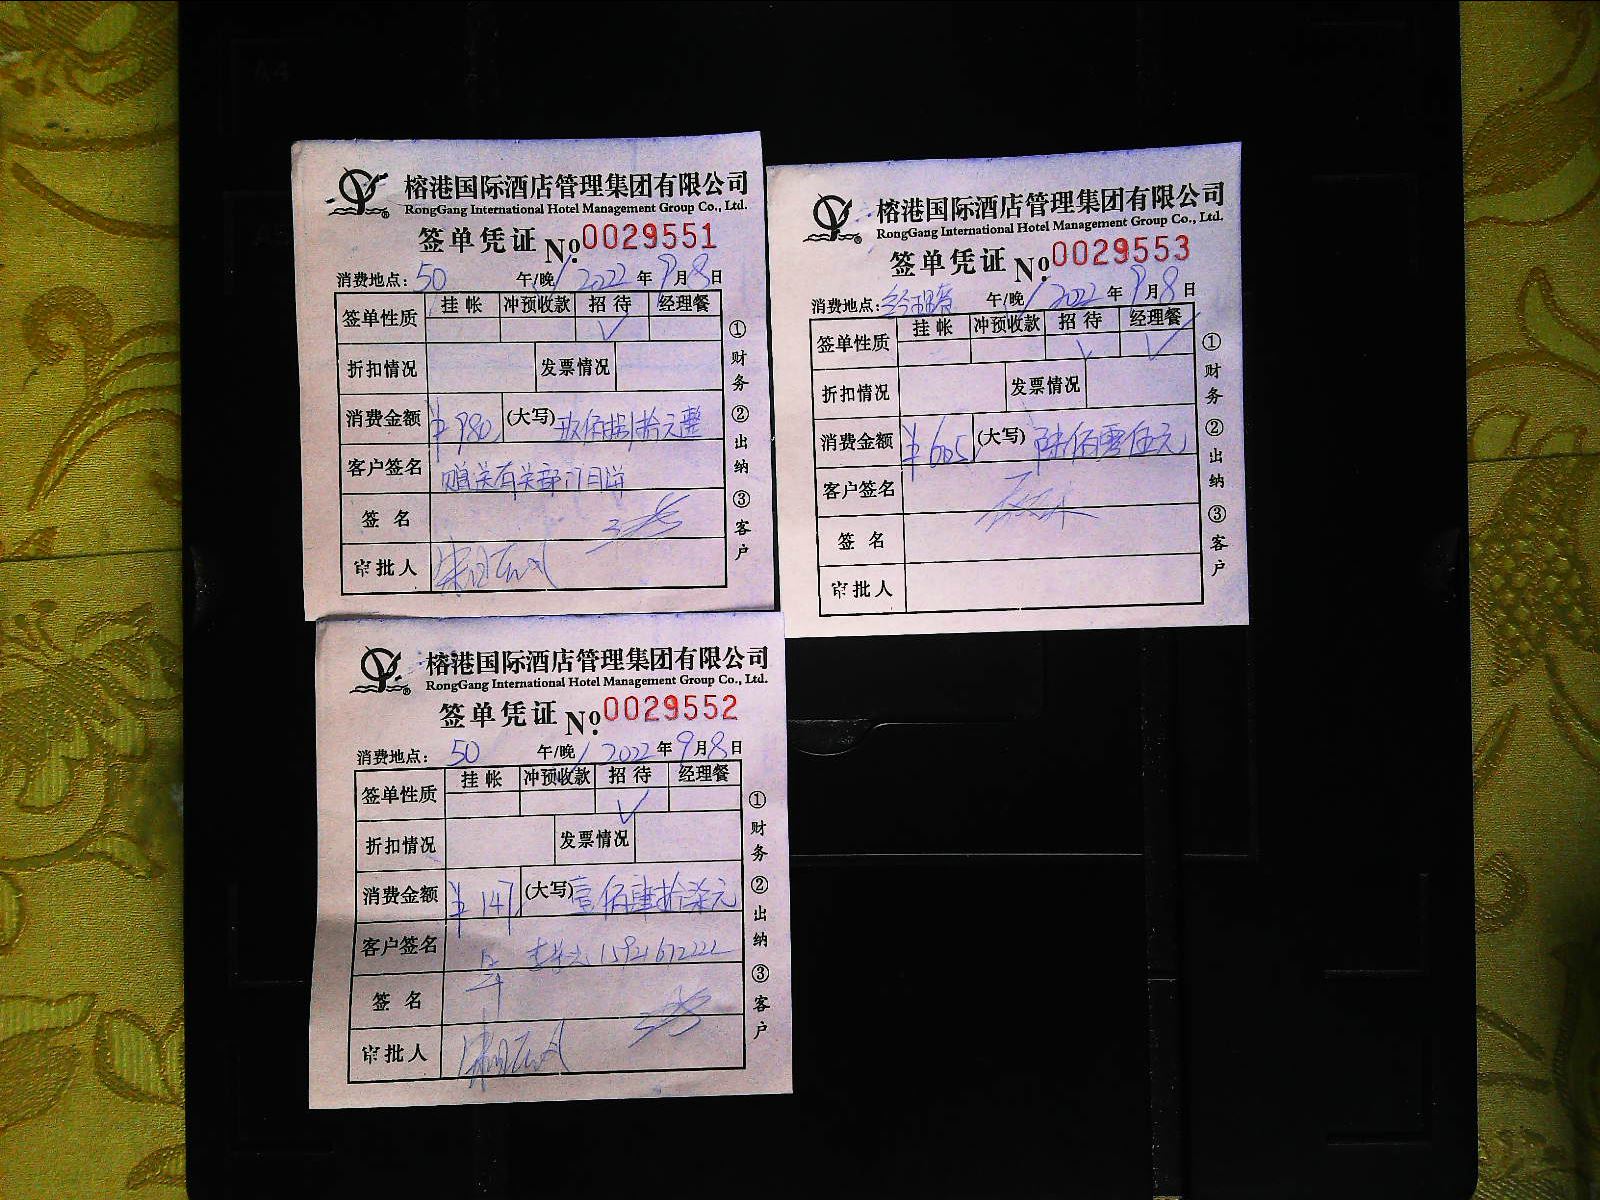 榕港国际酒店管理集团有限公司
RongGang International Hotel Management Group Co., Ltd.
签单凭证 No. 0029551
消费地点: 50 午/晚 2022年9月8日
签单性质 挂帐 冲预收款 招待 经理餐
√
折扣情况 发票情况
消费金额 ¥980 (大写) 玖佰捌拾元整
客户签名 赠送有关部门月饼
签名
审批人
①财务 ②出纳 ③客户
榕港国际酒店管理集团有限公司
RongGang International Hotel Management Group Co., Ltd.
签单凭证 No. 0029553
消费地点: 经理餐 午/晚 2022年9月8日
签单性质 挂帐 冲预收款 招待 经理餐
√ √
折扣情况 发票情况
消费金额 ¥605 (大写) 陆佰零伍元
客户签名
签名
审批人
①财务 ②出纳 ③客户
榕港国际酒店管理集团有限公司
RongGang International Hotel Management Group Co., Ltd.
签单凭证 No. 0029552
消费地点: 50 午/晚 2022年9月8日
签单性质 挂帐 冲预收款 招待 经理餐
√
折扣情况 发票情况
消费金额 ¥147 (大写) 壹佰肆拾柒元
客户签名 15921672222
签名
审批人
①财务 ②出纳 ③客户
A4